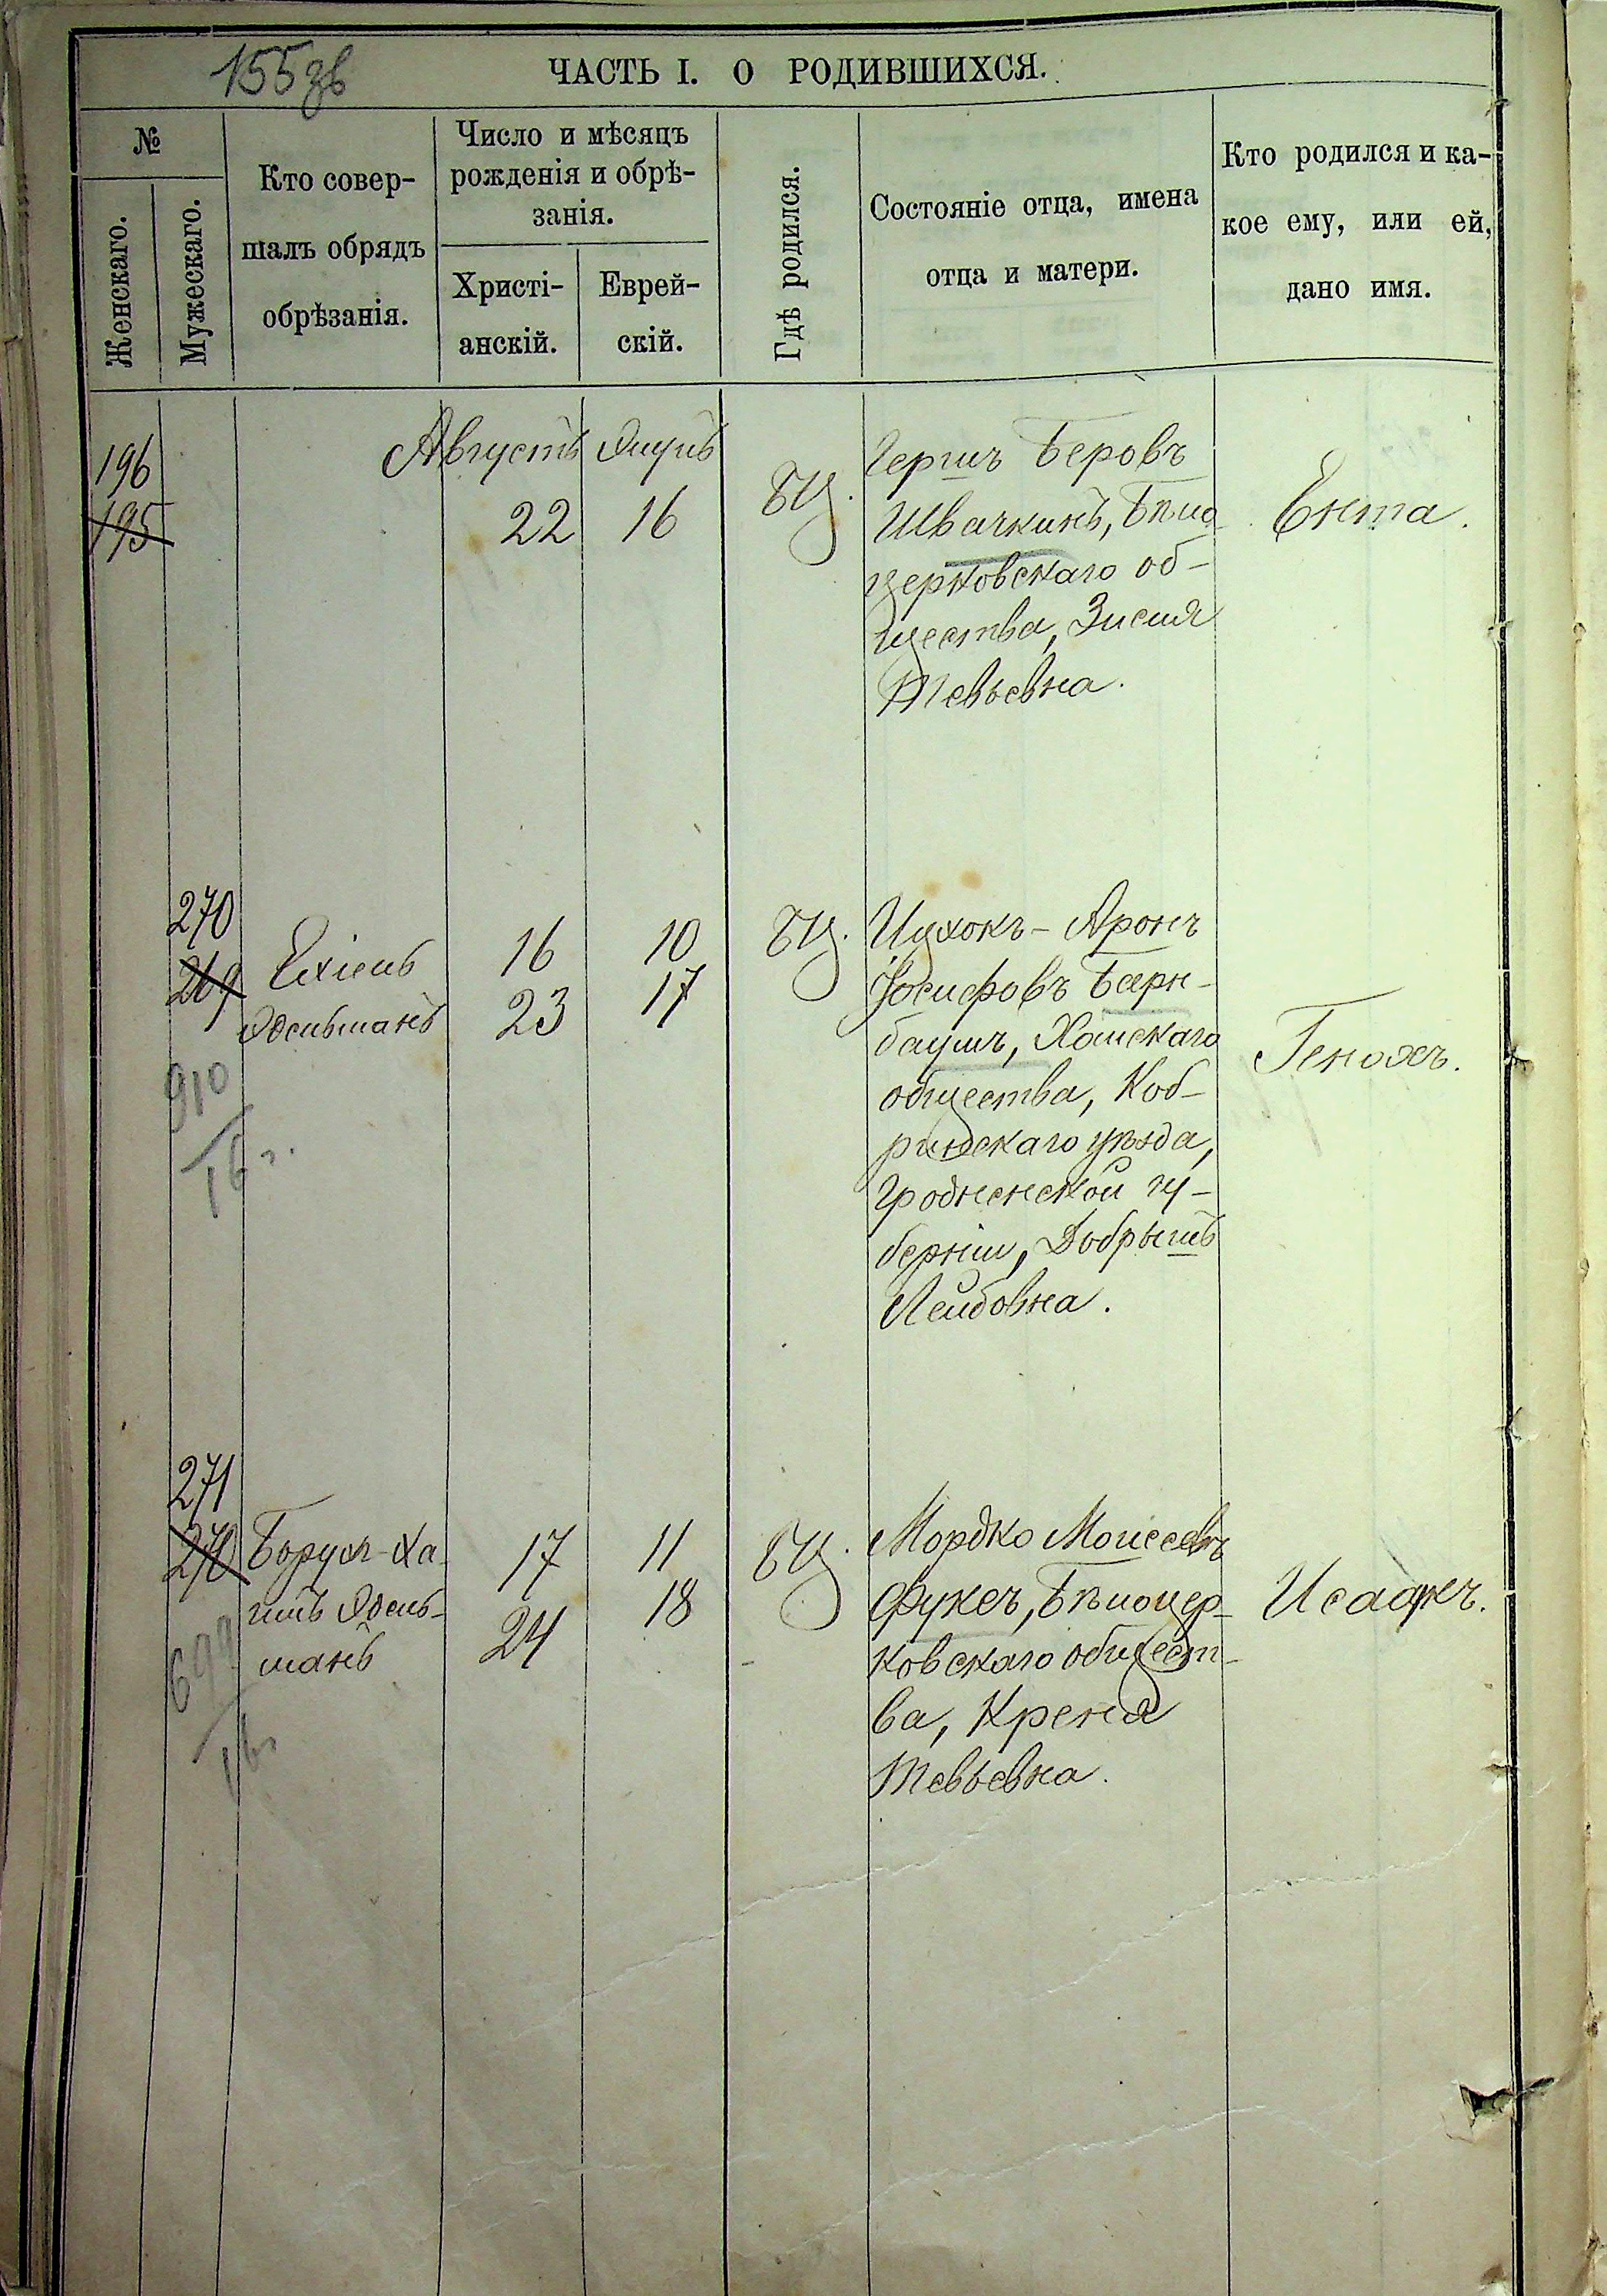 155 зв
ЧАСТЬ I. О РОДИВШИХСЯ.
№
Женскаго.
Мужескаго.
Кто совер-
шалъ обрядъ
обрѣзанія.
Число и мѣсяцъ
рожденія и обрѣ-
занія.
Христі-
анскій.
Еврей-
скій.
Гдѣ родился.
Состояніе отца, имена
отца и матери.
Кто родился и ка-
кое ему, или ей,
дано имя.
196
195
Августъ
22
16
БЦ.
Гершъ Беровъ
Швачкинъ, Бѣло
церковскаго об-
щества, Зисля
Тевьевна.
Ента.
270
269
910
16 г.
Ехіель
Эдельманъ
16
23
10
17
БЦ.
Ицхокъ-Аронъ
Іосифовъ Барн-
баумъ, Хомскаго
общества, Коб-
ринскаго уѣзда,
Гродненской гу-
берніи, Добрышъ
Лейбовна.
Генохъ.
271
270
699
16г
Борухъ-Ха-
имъ Эдель-
манъ
17
24
11
18
БЦ.
Мордко Моисеевъ
Фуксъ, Бѣлоцер-
ковскаго общест-
ва, Креня
Тевьевна.
Исаакъ.